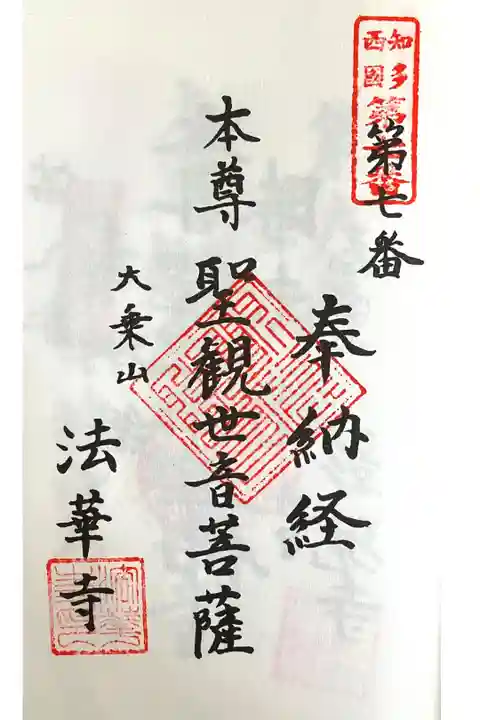 知多
西國
第七番
奉納経
本尊
聖観世音菩薩
大乗山
法華寺